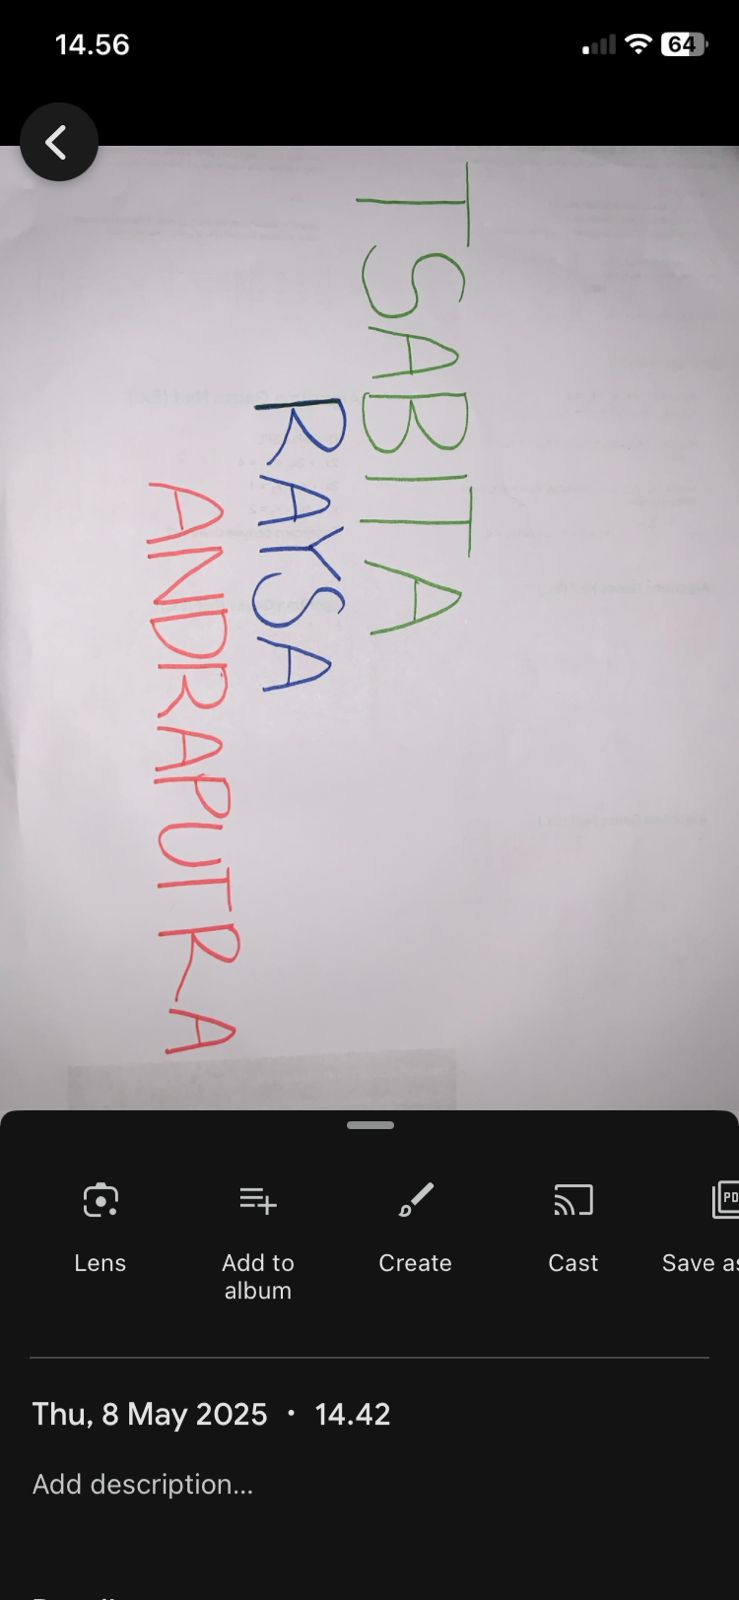 14.56
64
TSABITA
RAYSA
ANDRAPUTRA
Lens
Add to album
Create
Cast
Save as
Thu, 8 May 2025 · 14.42
Add description...